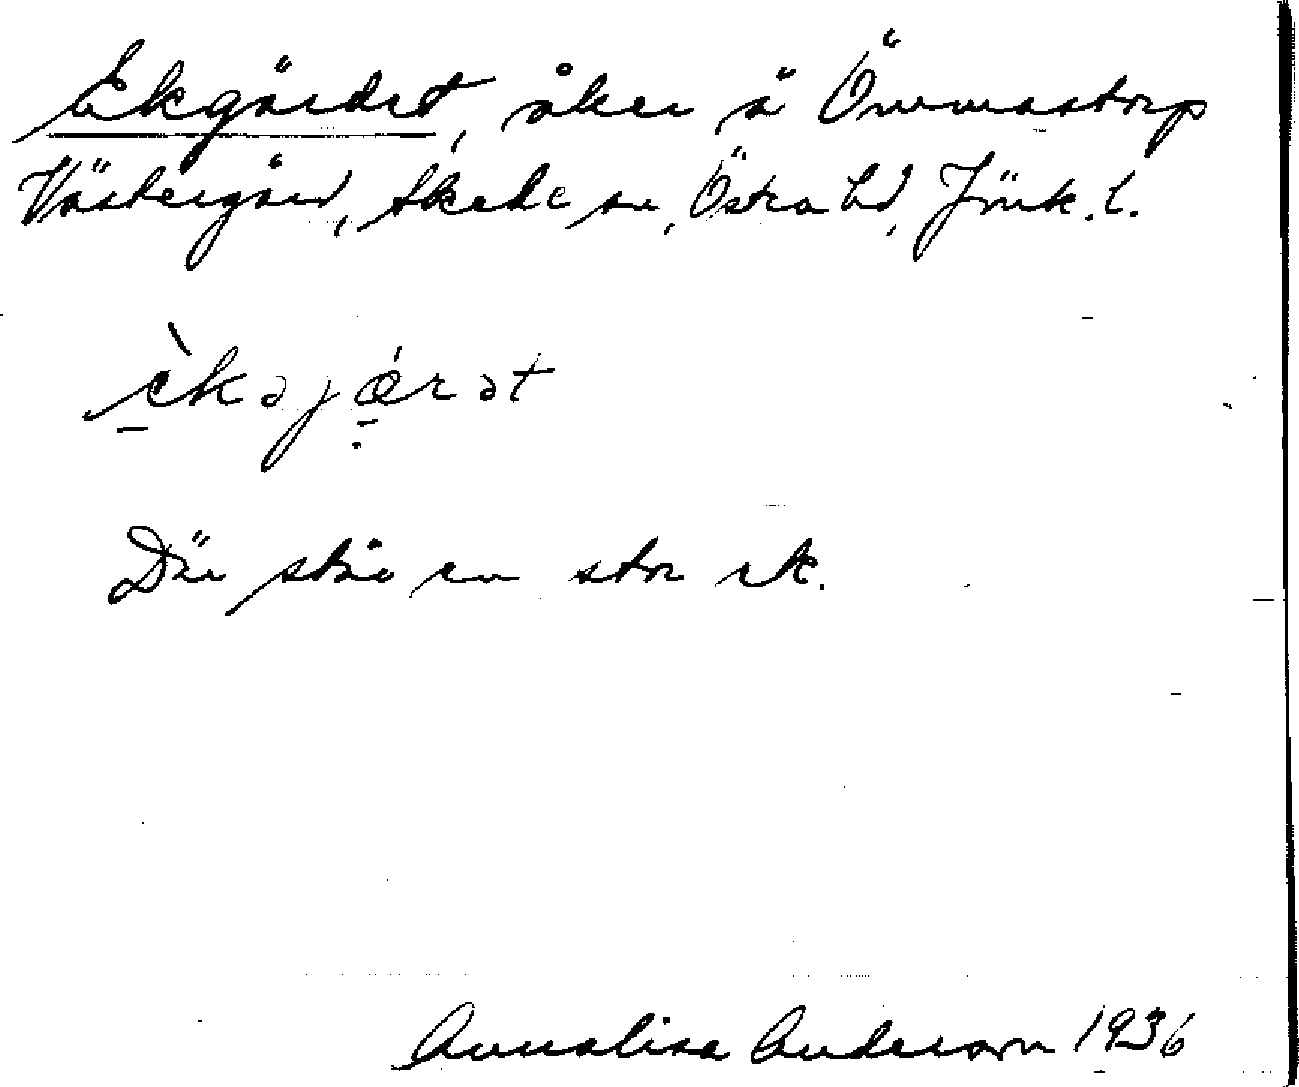 Ekgärdet, åker å Ömmastorp
Västergård, Skede sn, Östra hd, Jönk. l.
èkəjǽrət
Där står en stor ek.
Annalisa Anderson 1936